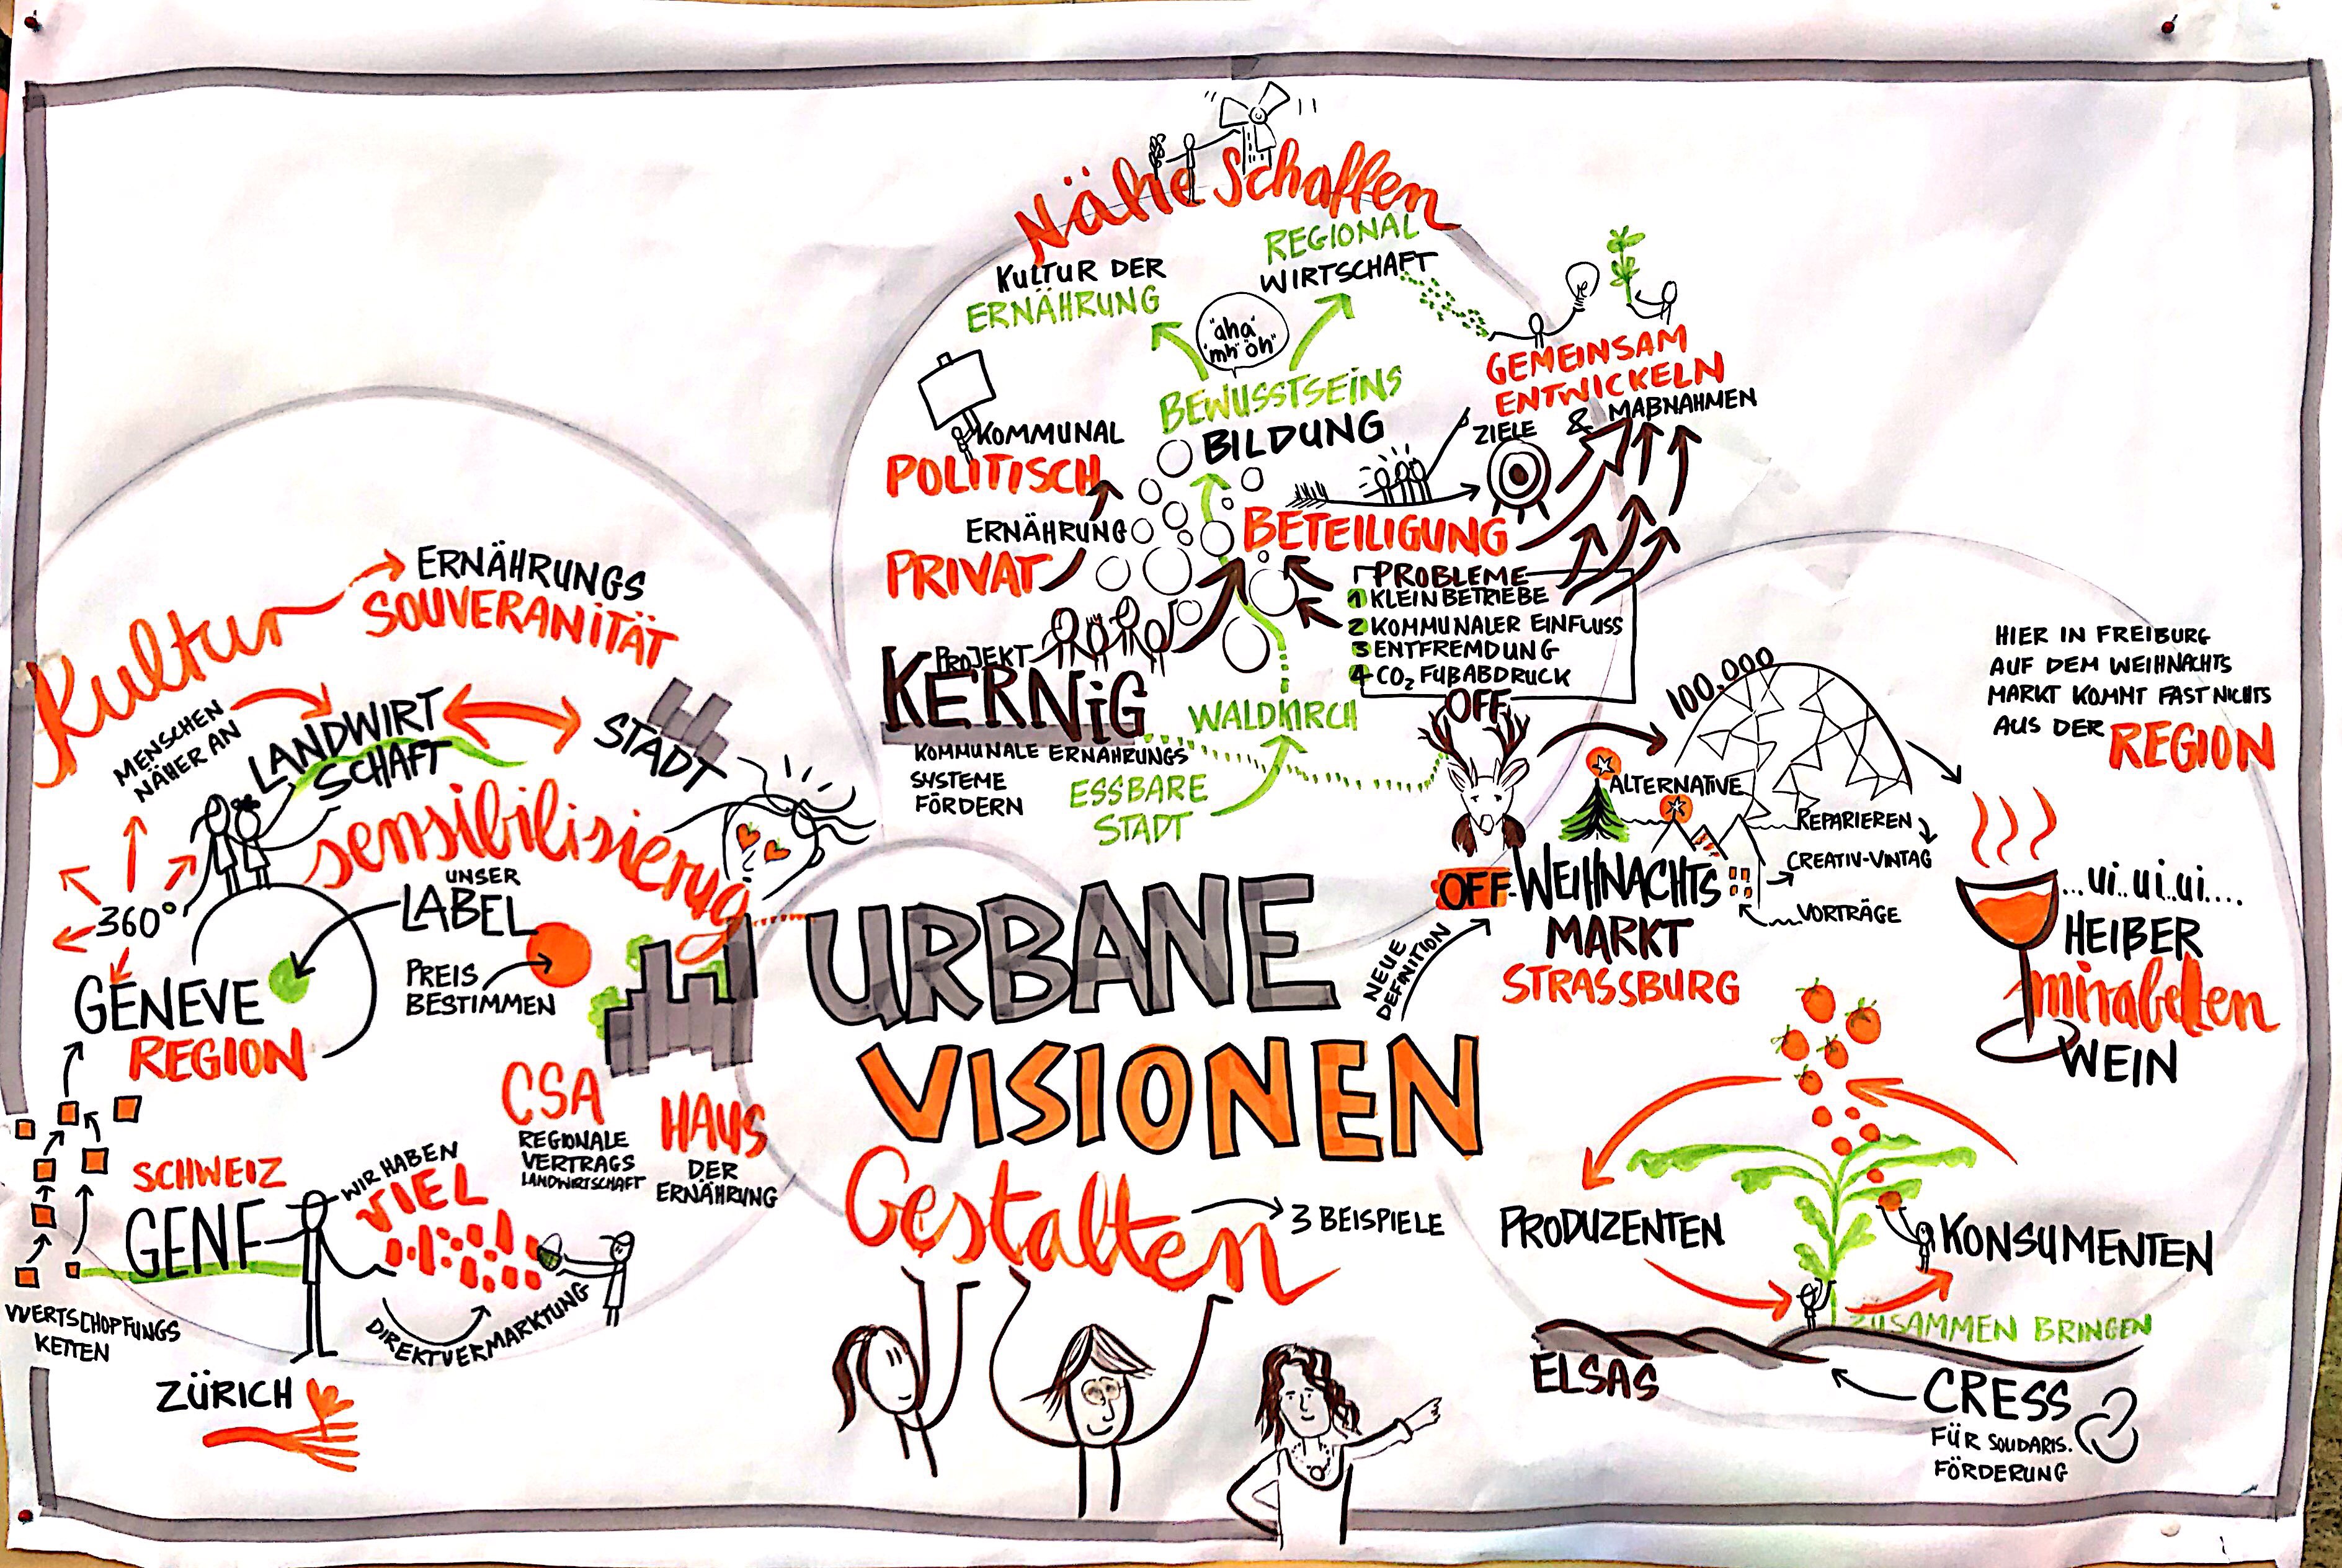 URBANE
VISIONEN
Gestalten
3 BEISPIELE
Kultur
ERNÄHRUNGS
SOUVERANITÄT
MENSCHEN
NÄHER AN
LANDWIRT
SCHAFT
STADT
sensibilisierug
360°
UNSER
LABEL
PREIS
BESTIMMEN
GENEVE
REGION
CSA
REGIONALE
VERTRAGS
LANDWIRTSCHAFT
HAUS
DER
ERNÄHRUNG
SCHWEIZ
GENF
WIR HABEN
VIEL
DIREKTVERMARKTUNG
WERTSCHOPFUNGS
KETTEN
ZÜRICH
Nähe Schaffen
KULTUR DER
ERNÄHRUNG
REGIONAL
WIRTSCHAFT
"aha"
"mh" öh"
BEWUSSTSEINS
BILDUNG
GEMEINSAM
ENTWICKELN
ZIELE & MAßNAHMEN
KOMMUNAL
POLITISCH
ERNÄHRUNG
PRIVAT
BETEILIGUNG
PROBLEME
1 KLEINBETRIEBE
2 KOMMUNALER EINFLUSS
3 ENTFREMDUNG
4 CO2 FUßABDRUCK
PROJEKT
KERNiG
KOMMUNALE ERNÄHRUNGS
SYSTEME
FÖRDERN
WALDKIRCH
ESSBARE
STADT
OFF
100.000
ALTERNATIVE
REPARIEREN
CREATIV-VINTAG
VORTRÄGE
OFF-WEIHNACHTS
MARKT
STRASSBURG
NEUE
DEFINITION
HIER IN FREIBURG
AUF DEM WEIHNACHTS
MARKT KOMMT FAST NICHTS
AUS DER REGION
...ui..ui.ui....
HEIßER
mirabellen
WEIN
PRODUZENTEN
KONSUMENTEN
ZUSAMMEN BRINGEN
ELSAS
CRESS
FÜR SOLIDARIS.
FÖRDERUNG